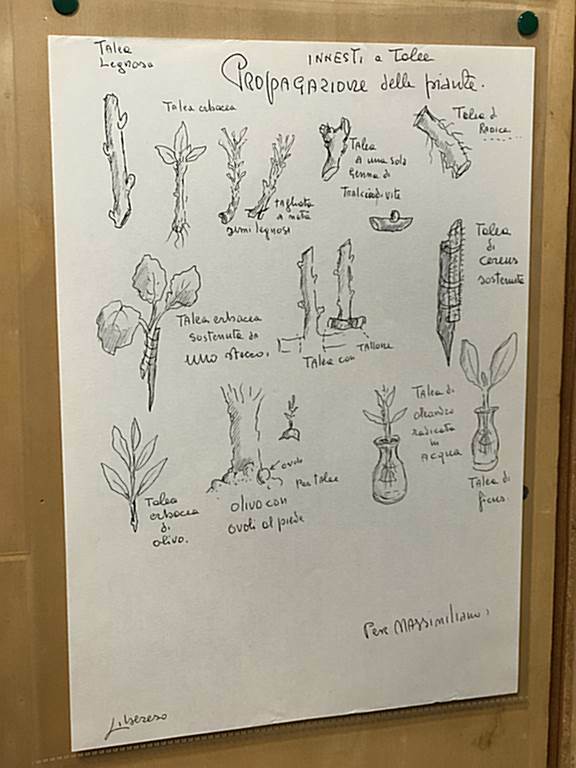 Talea
Legnosa
INNESTI a Talee
PROPAGAZIONE delle piante.
Talea erbacea
Talea di
RADICE
TALEA
A una sola
Gemma di
Tralcio di vite
tagliata
a metà
semi legnosi
TALEA
di
cereus
sostenuta
TALEA erbacea
sostenuta da
uno stecco.
TALEA con
TALLONE
Talea
erbacea
di
olivo.
ovolo
Per talee
olivo con
ovoli al piede
TALEA di
oleandro
radicata
in
ACQUA
TALEA di
ficus.
Per MASSIMILIANO.
Libereso